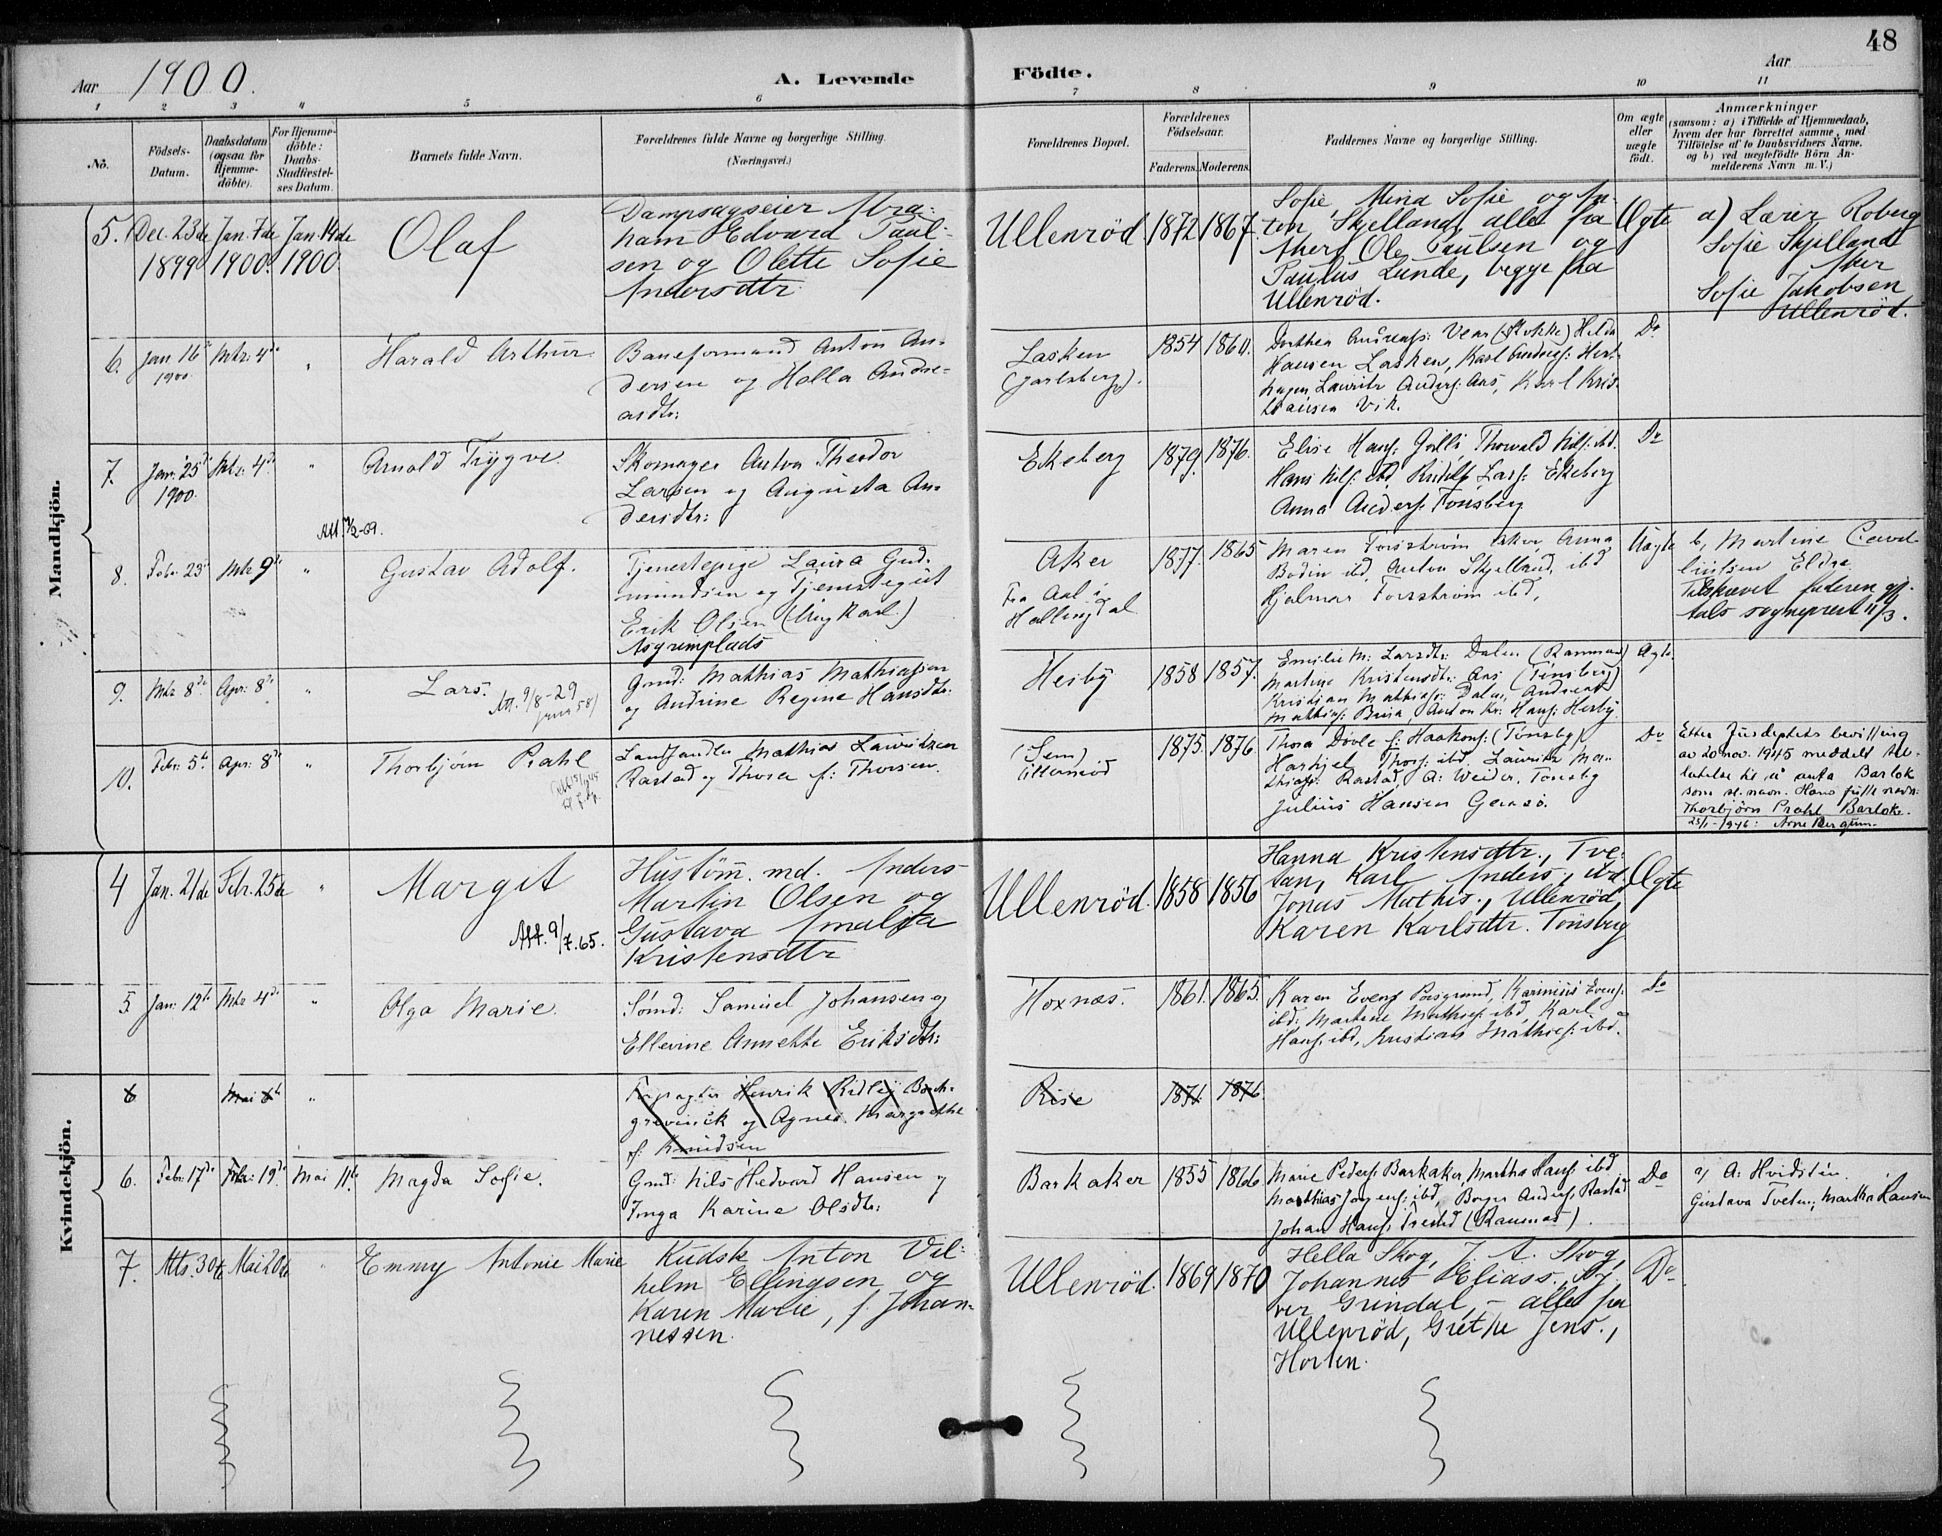 48
Aar 1900.
A. Levende Födte.
Aar
1 2 3 4 5 6 7 8 9 10 11
No.
Födsels-
Datum.
Daabsdatum
(ogsaa for
Hjemme-
döbte).
For Hjemme-
döbte:
Daabs-
Stadfæstel-
ses Datum.
Barnets fulde Navn.
Forældrenes fulde Navne og borgerlige Stilling.
(Næringsvei.)
Forældrenes Bopæl.
Forældrenes
Födselsaar.
Faderens. Moderens.
Faddernes Navne og borgerlige Stilling.
Om ægte
eller
uægte
födt.
Anmærkninger
(saasom: a) i Tilfælde af Hjemmedaab,
hvem der har forrettet samme, med
Tilföielse af to Daabsvidners Navne.
og b) ved uægtefödte Börn An-
melderens Navn m. V.)
Mandkjön.
5. Dec. 23de
1899
Jan. 7de
1900.
Jan. 14de
1900.
Olaf
Dampsageier Abra-
ham Edvard Paul-
sen og Olette Sofie
Andersdtr.
Ullenröd 1872 1867.
Sofie Mina Sofie og An-
ton Skjelland alle fra
Aker Ole Paulsen og
Paulus Lunde, begge fra
Ullenröd.
Ægte
a) Lærer Roberg
Sofie Skjelland
Aker
Sofie Jakobsen
Ullenröd.
6. Jan 16de
1900.
Mtz. 4de
"
Harald Arthur.
Baneformand Anton An-
dersen og Holla Andre-
asdtr:
Lasken
(Jarlsberg).
1854
Dorthea Andreas: Vear (Stokke) Hilda
Hansen Lasken, Karl Andreas:
Lauritz Anders: Aas, Karl Kris-
tiansen Vik.
Do
7. Jan. 25de
1900.
Mtz. 4de
"
Arnold Trygve.
Skomager Anton Theodor
Larsen og Augusta An-
dersdtr:
Ekeberg 1879. 1876.
Elise Hans: Thorvald Nils: ibd.
Hans Nils: ibd, Lars: Ekeberg
Anna Anders: Tönsberg
Do
8. Febr. 23de
Mtz 9de
"
Att. -09.
Gustav Adolf.
Tjenestepige Laura Gud-
mundsen og Tjenestegut
Erik Olsen (Ungkarl.)
Asgrimplads
Aker
Fra Aal i
Hallingdal
1877. 1865
Maren Forsström Aker, Anna
Bodin ibd, Anton Skjelland, ibd
Hjalmar Forsström ibd,
Uægte
b, Martine
Eldre
Tilskrevet faderen gj.
Aals sogneprest 11/3.
9. Mtz 8de
Apr: 8de
"
Lars.
Att. 9/8-29
Gmd: Mathias Mathiassen
og Andrine Regine Hansdtr:
Hesby 1858 1857.
Emilie M: Larsdtr: Dalen (Ramnes)
Martine Kristensdtr: Aas (Tönsberg)
Kristian Mathias: Dalen, Andreas
Mathias: Anton Kr: Hans: Hesby
Ægte
10. Febr: 5te
Apr: 8de
"
Thorbjörn Prahl
Landhandler Mathias Lauritzen
Rastad og Thora f: Thorsen.
(Sem)
1875. 1876
Thora Dövle f: Haakons: (Tönsberg)
Thors: ibd. Lauritz Ma-
thias: Rastad, A: Weider, Tönsbg
Julius Hansen
Do
Etter Jusdeptets bevilling
av 20 nov. 1945 meddelt til-
latelse til å anta Barlok
som sl.navn. Hans fulle navn:
Thorbjörn Prahl Barlok.
25/1-1946: Arne Bergum.
Kvindekjön.
4 Jan. 21de
Febr. 25de
"
Margit
Att. 9/7.65.
Hustöm. md. Anders
Martin Olsen og
Gustava Amalia
Kristensdtr
Ullenröd. 1858 1856
Hanna Kristensdtr., Tve-
tan, Karl Anders., ibd.
Jonas Mathis., Ullenröd,
Karen Karlsdtr. Tönsberg
Ægte
5 Jan: 12te
Mtz 4de
"
Olga Marie.
Sömd: Samuel Johansen og
Ellevine Annette Eriksdtr:
Hoxnæs. 1861. 1865.
Karen Evens Porsgrund, Evens:
ibd: Martine Mathis: ibd, Karl
Hans: ibd, Kristian Mathis: ibd.
Do
6
Mai 6te
"
Forpagter Henrik Ridley Borch-
grevinck og Agnes Margrethe
f: Knudsen
Rise 1871 1876
6. Febr: 17de
Febr: 19de
Mai 11te
Magda Sofie.
Gmd: Nils Hedvard Hansen og
Inga Karine Olsdtr:
Barkaker 1855 1866
Marie Peders: Barkaker, Martha Hans: ibd
Mathias Jörgens: ibd, Anders: Rastad
Johan Hans: (Ramnes).
Do
a) A: Hvidsten.
Gustava Tveten, Martha Hansen
7. Mts. 30te
Mai 20de
"
Emmy Antonie Marie
Kudsk Anton Vil-
helm Ellingsen og
Karen Marie, f. Johan-
nessen.
Ullenröd. 1869 1870
Hella Skog, J. A. Skog,
Johannes Eliass.,
Grindal, - alle fra
Ullenröd, Grethe Jens.,
Horten.
Do